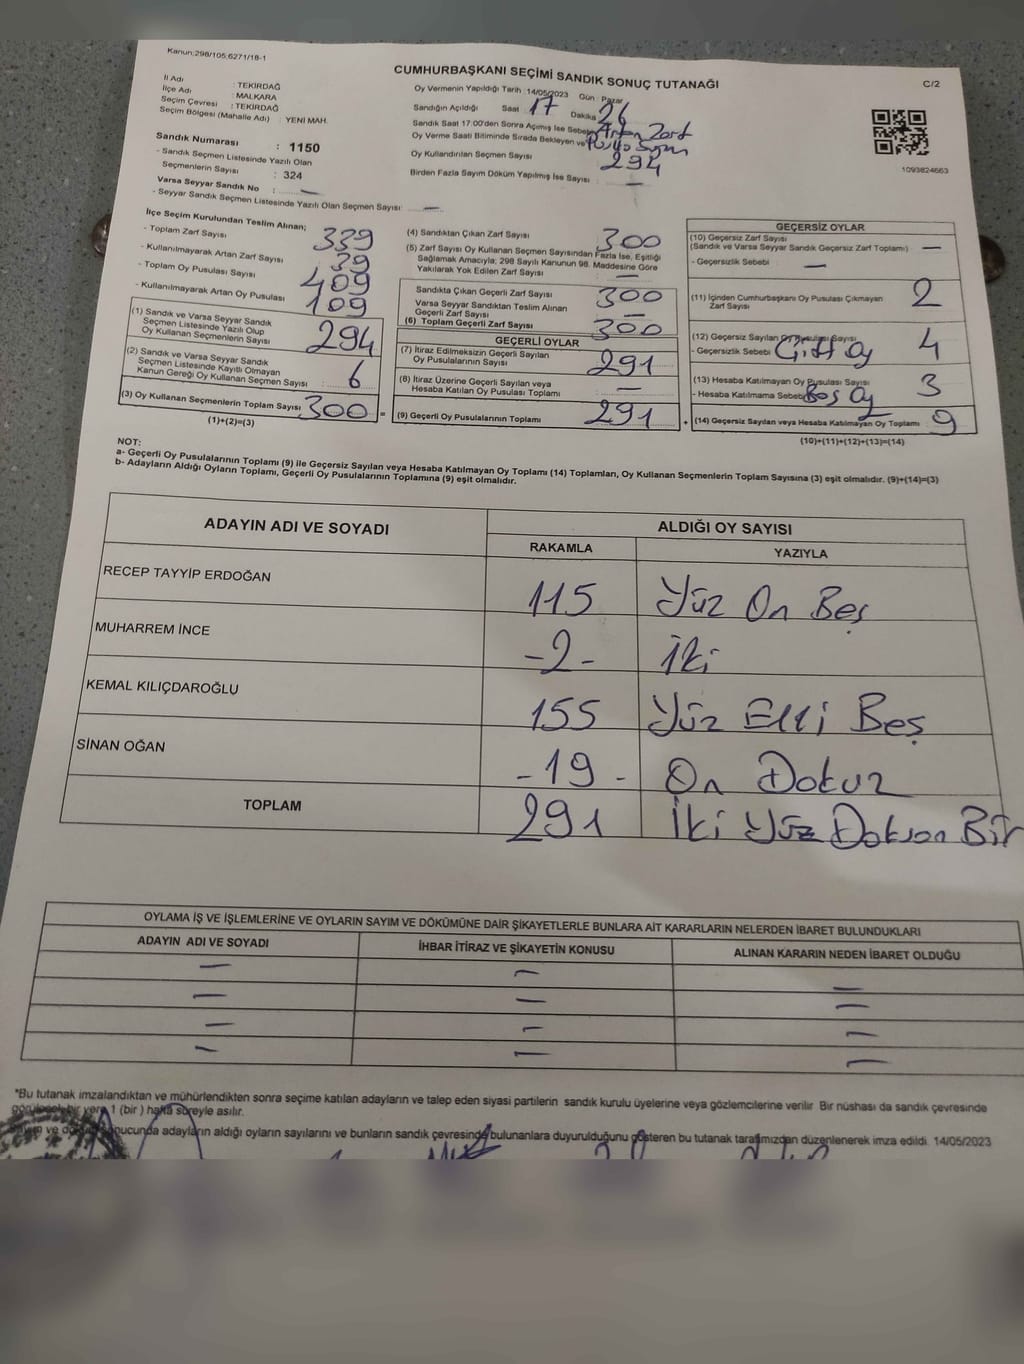 Kanun:298/105;6271/18-1
CUMHURBAŞKANI SEÇİMİ SANDIK SONUÇ TUTANAĞI
C/2
İl Adı : TEKİRDAĞ
İlçe Adı : MALKARA
Seçim Çevresi : TEKİRDAĞ
Seçim Bölgesi (Mahalle Adı) : YENİ MAH.
Sandık Numarası : 1150
- Sandık Seçmen Listesinde Yazılı Olan
Seçmenlerin Sayısı : 324
Varsa Seyyar Sandık No : —
- Seyyar Sandık Seçmen Listesinde Yazılı Olan Seçmen Sayısı: —
Oy Vermenin Yapıldığı Tarih :14/05/2023 Gün : Pazar
Sandığın Açıldığı Saat 17 Dakika 26
Sandık Saat 17:00'den Sonra Açımış İse Sebebi Artan Zarf
Oy Verme Saati Bitiminde Sırada Bekleyen ve
Oy Kullandırılan Seçmen Sayısı 294
Birden Fazla Sayım Döküm Yapılmış İse Sayısı : —
1093824663
İlçe Seçim Kurulundan Teslim Alınan;
- Toplam Zarf Sayısı 339
- Kullanılmayarak Artan Zarf Sayısı 39
- Toplam Oy Pusulası Sayısı 409
- Kullanılmayarak Artan Oy Pusulası 109
(1) Sandık ve Varsa Seyyar Sandık
Seçmen Listesinde Yazılı Olup
Oy Kullanan Seçmenlerin Sayısı 294
(2) Sandık ve Varsa Seyyar Sandık
Seçmen Listesinde Kayıtlı Olmayan
Kanun Gereği Oy Kullanan Seçmen Sayısı : 6
(3) Oy Kullanan Seçmenlerin Toplam Sayısı 300 =
(1)+(2)=(3)
(4) Sandıktan Çıkan Zarf Sayısı 300
(5) Zarf Sayısı Oy Kullanan Seçmen Sayısından Fazla İse, Eşitliği
Sağlamak Amacıyla; 298 Sayılı Kanunun 98. Maddesine Göre
Yakılarak Yok Edilen Zarf Sayısı —
Sandıkta Çıkan Geçerli Zarf Sayısı 300
Varsa Seyyar Sandıktan Teslim Alınan
Geçerli Zarf Sayısı —
(6) Toplam Geçerli Zarf Sayısı 300
GEÇERLİ OYLAR
(7) İtiraz Edilmeksizin Geçerli Sayılan
Oy Pusulalarının Sayısı 291
(8) İtiraz Üzerine Geçerli Sayılan veya
Hesaba Katılan Oy Pusulası Toplamı —
(9) Geçerli Oy Pusulalarının Toplamı 291 +
GEÇERSİZ OYLAR
(10) Geçersiz Zarf Sayısı
(Sandık ve Varsa Seyyar Sandık Geçersiz Zarf Toplamı) —
- Geçersizlik Sebebi : —
(11) İçinden Cumhurbaşkanı Oy Pusulası Çıkmayan
Zarf Sayısı 2
(12) Geçersiz Sayılan Oy Pusulası Sayısı 4
- Geçersizlik Sebebi Çift Oy
(13) Hesaba Katılmayan Oy Pusulası Sayısı 3
- Hesaba Katılmama Sebebi Boş Oy
(14) Geçersiz Sayılan veya Hesaba Katılmayan Oy Toplamı 9
(10)+(11)+(12)+(13)=(14)
NOT:
a- Geçerli Oy Pusulalarının Toplamı (9) ile Geçersiz Sayılan veya Hesaba Katılmayan Oy Toplamı (14) Toplamları, Oy Kullanan Seçmenlerin Toplam Sayısına (3) eşit olmalıdır. (9)+(14)=(3)
b- Adayların Aldığı Oyların Toplamı, Geçerli Oy Pusulalarının Toplamına (9) eşit olmalıdır.
ADAYIN ADI VE SOYADI ALDIĞI OY SAYISI
RAKAMLA YAZIYLA
RECEP TAYYİP ERDOĞAN 115 Yüz On Beş
MUHARREM İNCE -2- İki
KEMAL KILIÇDAROĞLU 155 Yüz Elli Beş
SİNAN OĞAN -19- On Dokuz
TOPLAM 291 İki Yüz Doksan Bir
OYLAMA İŞ VE İŞLEMLERİNE VE OYLARIN SAYIM VE DÖKÜMÜNE DAİR ŞİKAYETLERLE BUNLARA AİT KARARLARIN NELERDEN İBARET BULUNDUKLARI
ADAYIN ADI VE SOYADI İHBAR İTİRAZ VE ŞİKAYETİN KONUSU ALINAN KARARIN NEDEN İBARET OLDUĞU
— — —
— — —
— — —
— — —
*Bu tutanak imzalandıktan ve mühürlendikten sonra seçime katılan adayların ve talep eden siyasi partilerin sandık kurulu üyelerine veya gözlemcilerine verilir. Bir nüshası da sandık çevresinde
görülecek bir yere 1 (bir ) hafta süreyle asılır.
ve sonucunda adayların aldığı oyların sayılarını ve bunların sandık çevresinde bulunanlara duyurulduğunu gösteren bu tutanak tarafımızdan düzenlenerek imza edildi. 14/05/2023